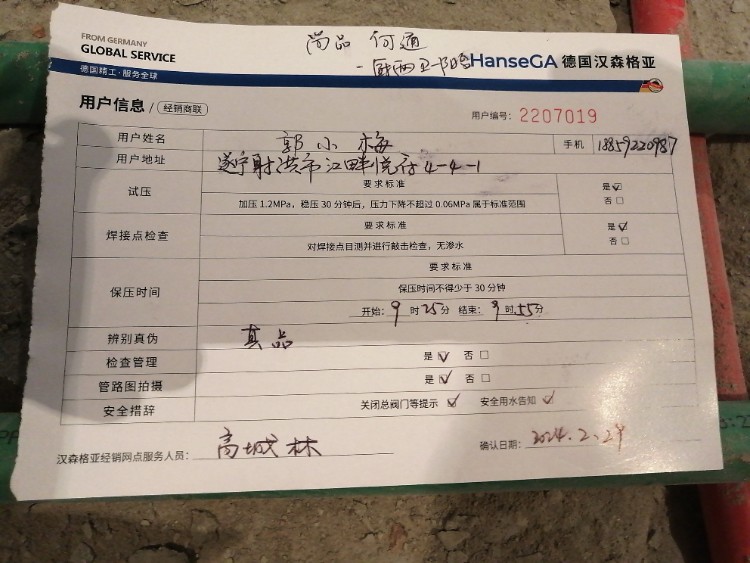 FROM GERMANY
GLOBAL SERVICE
德国精工·服务全球
尚品 何通
HanseGA 德国汉森格亚
用户信息 / 经销商联
用户编号: 2207019
用户姓名 郭小梅 手机 18859220987
用户地址 遂宁射洪市江畔悦府4-4-1
试压 要求标准 是☑
加压1.2MPa,稳压30分钟后,压力下降不超过0.06MPa属于标准范围 否☐
焊接点检查 要求标准 是☑
对焊接点目测并进行敲击检查,无渗水 否☐
保压时间 要求标准
保压时间不得少于30分钟
开始: 9时25分 结束: 9时55分
辨别真伪 真品
检查管理 是☑ 否☐
管路图拍摄 是☑ 否☐
安全措辞 关闭总阀门等提示 ☑ 安全用水告知 ☑
汉森格亚经销网点服务人员: 高城林 确认日期: 2024.2.29